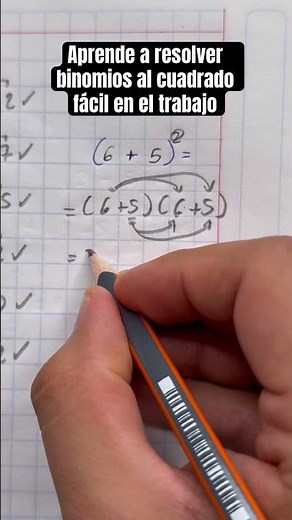 Aprende a resolver
binomios al cuadrado
fácil en el trabajo
2✓
(6 + 5)² =
7✓
= (6+5)(6+5)
5✓
=
✓
✓
2✓